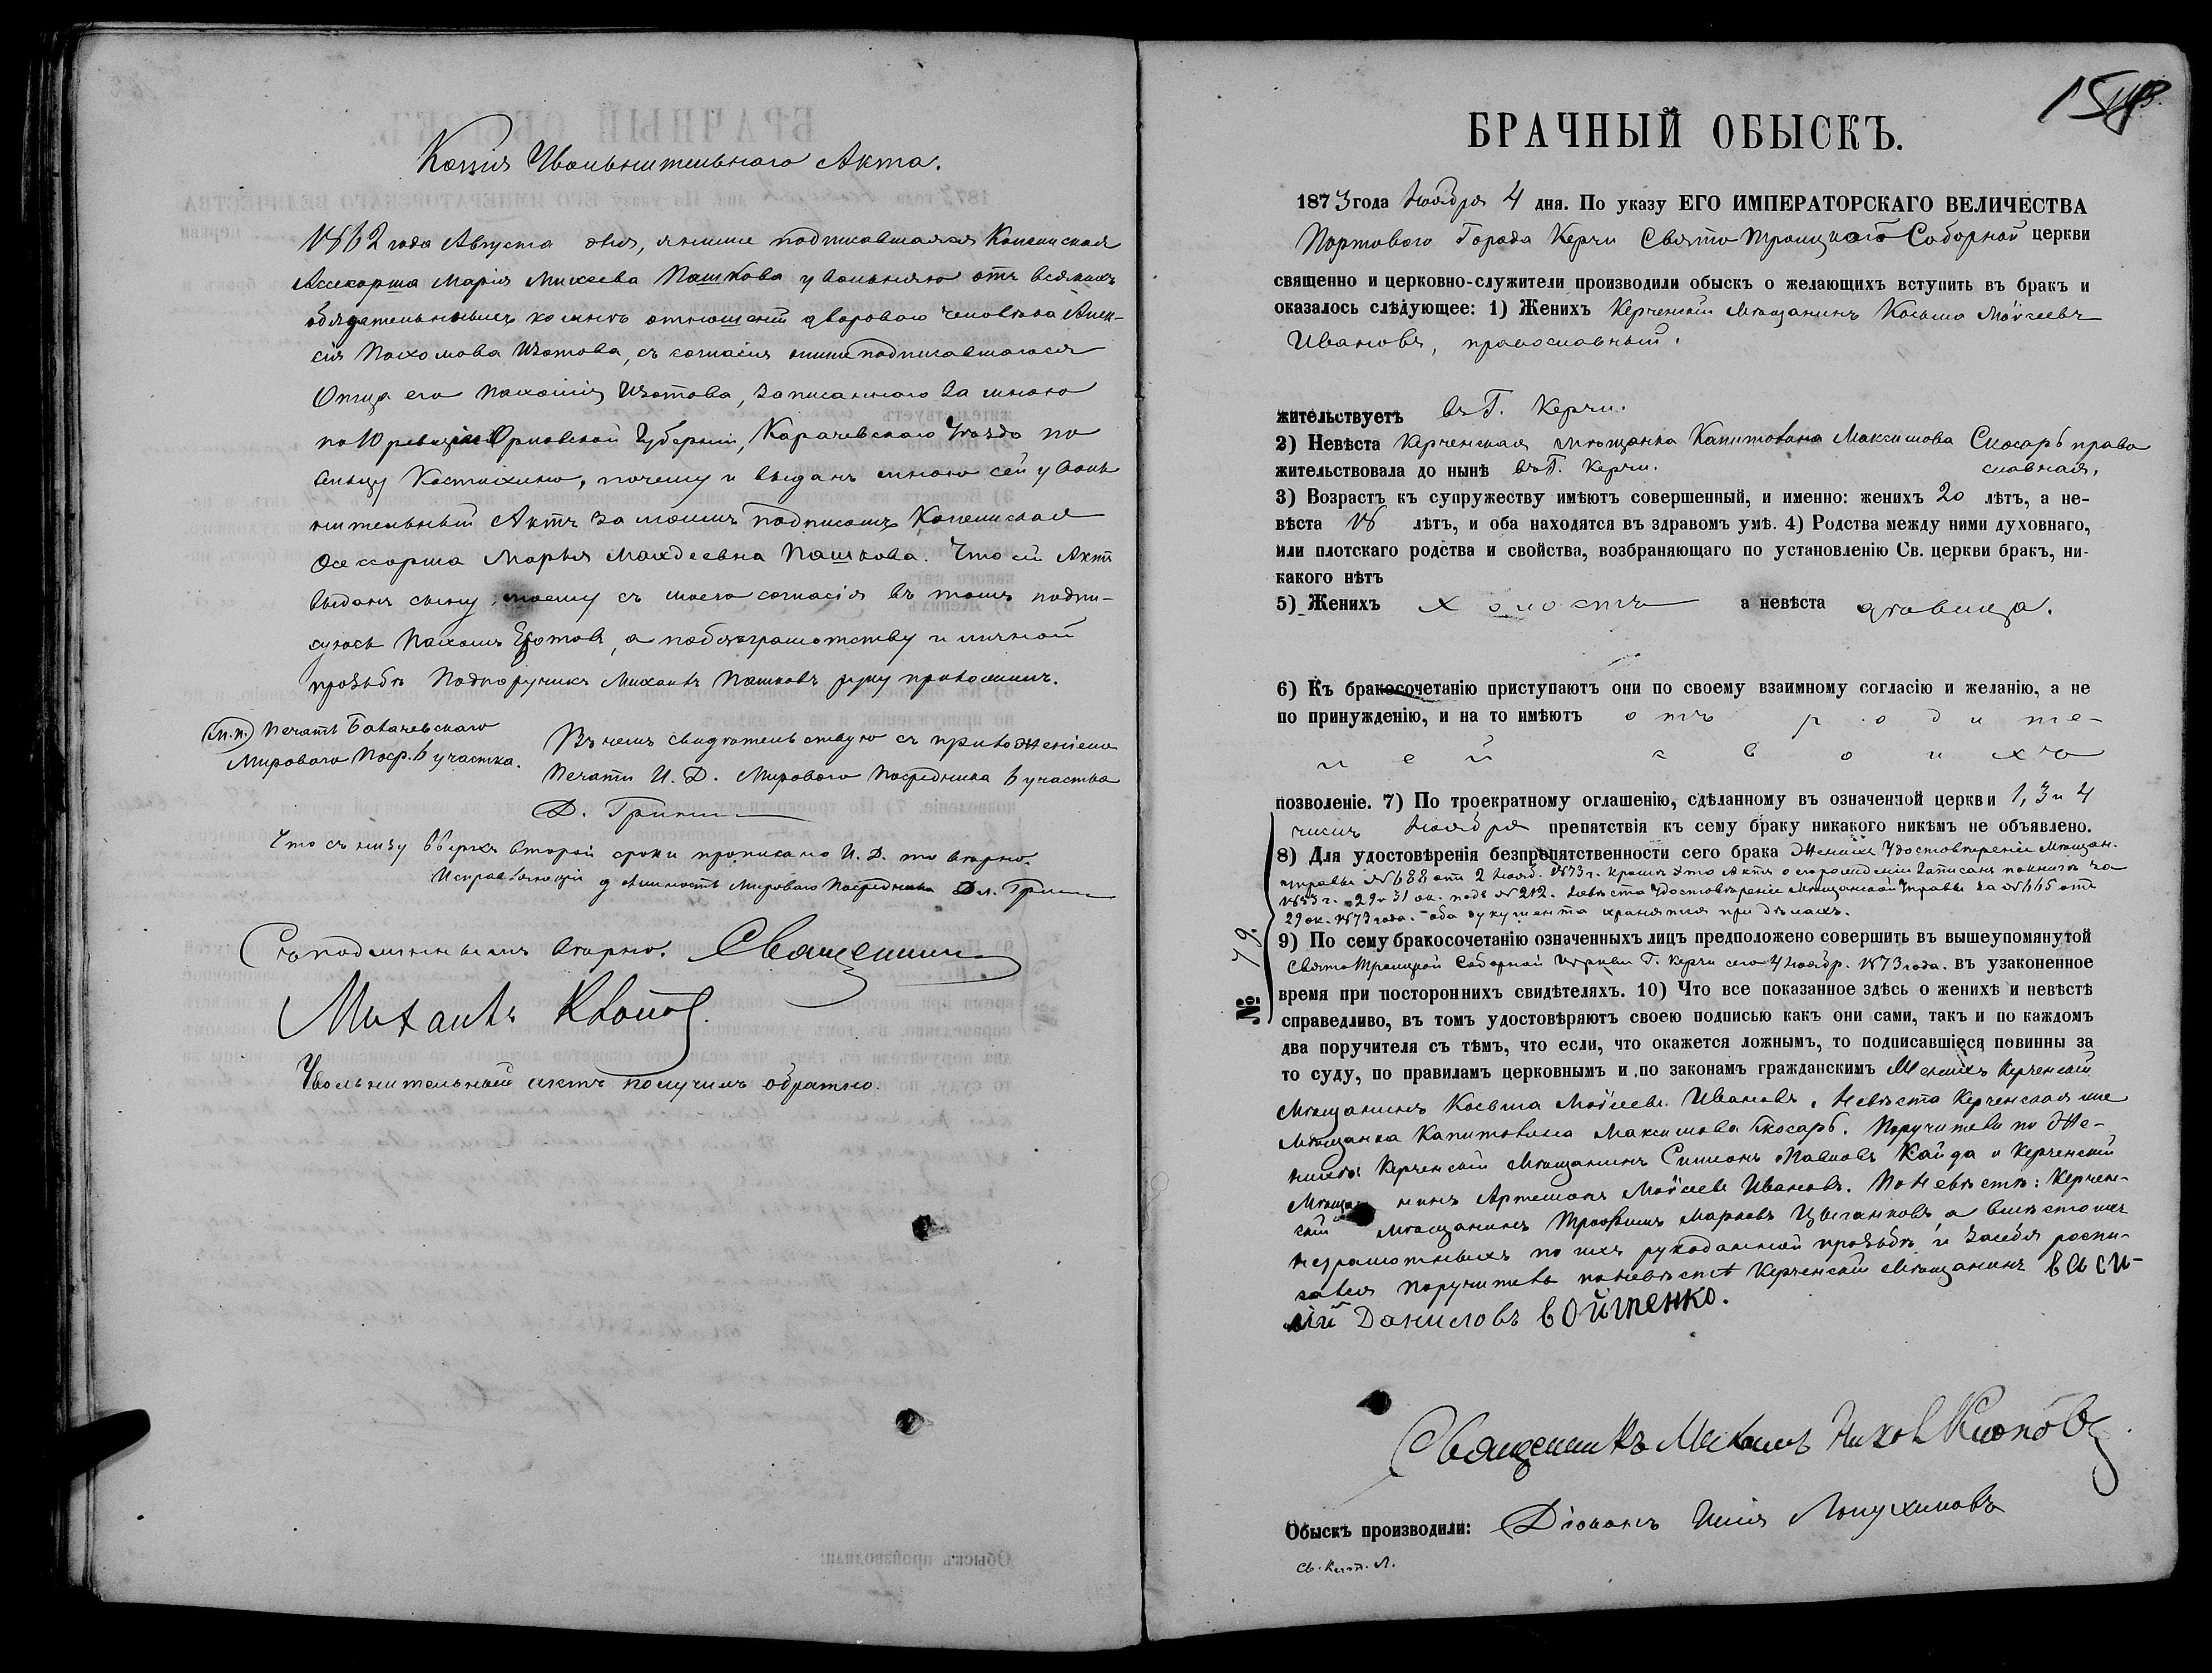 Копія Увольнительнаго Акта.
1862 года Августа дня, я ниже подписавшаяся Колежская
Ассесорша Марія Михеева Пашкова увольняю отъ всякихъ
обязательныхъ ко мнѣ отношеній двороваго человѣка Алек-
сія Пахомова Изотова, съ согласія ниже подписавшагося
Отца его Пахомія Изотова, записаннаго за мною
по 10 ревизіи Орловской Губерніи, Карачевскаго Уѣзда по
сельцу, почему и выданъ мною сей уволь
нительный Актъ за моимъ подписомъ, Колежская
Асессорша Марья Пашкова. Что сей Актъ
выданъ сыну моему съ моего согласія въ томъ подпи-
суюсь Пахомъ Изотовъ, а по безграмотству и личной
прозьбѣ Подпоручикъ Михаилъ Пашковъ руку приложилъ.
(М.П.) Печать
Мироваго Поср. 6 участка.
Въ чемъ свидѣтельствую съ приложеніемъ
Печати И. Д. Мироваго Посредника 6 участка
Д. Гринъ
Что съ низу вверхъ второй строки прописано И. Д. то вѣрно.
Исправляющій должность Мироваго Посредника
Съ подлиннымъ вѣрно. Священникъ
Михаилъ Клоповъ.
Увольнительный актъ получилъ обратно.
БРАЧНЫЙ ОБЫСКЪ.
1873 года Ноября 4 дня. По указу ЕГО ИМПЕРАТОРСКАГО ВЕЛИЧЕСТВА
Портоваго Города Керчи Свято Троицкаго Соборной церкви
священно и церковно-служители производили обыскъ о желающихъ вступить въ бракъ и
оказалось слѣдующее: 1) Женихъ Керченскій Мѣщанинъ Косьма Моисеевъ
Ивановъ, православный.
жительствуетъ въ Г. Керчи.
2) Невѣста Керченская мѣщанка Капитолина Максимова Скосарь право
жительствовала до нынѣ въ Г. Керчи. славная.
3) Возрастъ къ супружеству имѣютъ совершенный, и именно: женихъ 20 лѣтъ, а не-
вѣста 18 лѣтъ, и оба находятся въ здравомъ умѣ. 4) Родства между ними духовнаго,
или плотскаго родства и свойства, возбраняющаго по установленію Св. церкви бракъ, ни-
какого нѣтъ
5) Женихъ холостъ а невѣста дѣвица.
6) Къ бракосочетанію приступаютъ они по своему взаимному согласію и желанію, а не
по принужденію, и на то имѣютъ отъ родите-
лей своихъ
позволеніе. 7) По троекратному оглашенію, сдѣланному въ означенной церкви 1, 3 и 4
числъ Ноября препятствія къ сему браку никакого никѣмъ не объявлено.
8) Для удостовѣренія безпрепятственности сего брака Женихъ Удостовѣреніе Мѣщан.
управы № 688 отъ 2 Нояб. 1873 г. кромѣ Актъ о рожденіи записанъ по книгѣ за
29 31 ок. подъ № 212. Невѣста Удостовѣреніе Мѣщанской Управы за № 665 отъ
29 ок. 1873 года. оба документа хранятся при дѣлахъ.
№ 79.
9) По сему бракосочетанію означенныхъ лицъ предположено совершить въ вышеупомянутой
Свято Троицкой Соборной Церкви Г. Керчи сего 4 Ноябр. 1873 года. въ узаконенное
время при постороннихъ свидѣтеляхъ. 10) Что все показанное здѣсь о женихѣ и невѣстѣ
справедливо, въ томъ удостовѣряютъ своею подписью какъ они сами, такъ и по каждомъ
два поручителя съ тѣмъ, что если, что окажется ложнымъ, то подписавшіеся повинны за
то суду, по правиламъ церковнымъ и по законамъ гражданскимъ Женихъ Керченскій
Мѣщанинъ Косьма Моисеевъ Ивановъ. Невѣста Керченская
Мѣщанка Капитолина Максимова Скосарь. Поручители по Же-
нихѣ: Керченскій Мѣщанинъ Симеонъ Павловъ Кайда и Керченскій
Мѣщанинъ Артемонъ Моисеевъ Ивановъ. По Невѣстѣ: Керчен-
скій мѣщанинъ Трофимъ Марковъ Цыганковъ а вмѣсто ихъ
неграмотныхъ по ихъ рукоданной прозьбѣ и за себя роспи-
сался поручитель по невѣстѣ Керченскій Мѣщанинъ Васи-
лій Даниловъ Войтенко.
Священникъ Михаилъ Клоповъ
Обыскъ производили: Діаконъ Илія Лопухиновъ